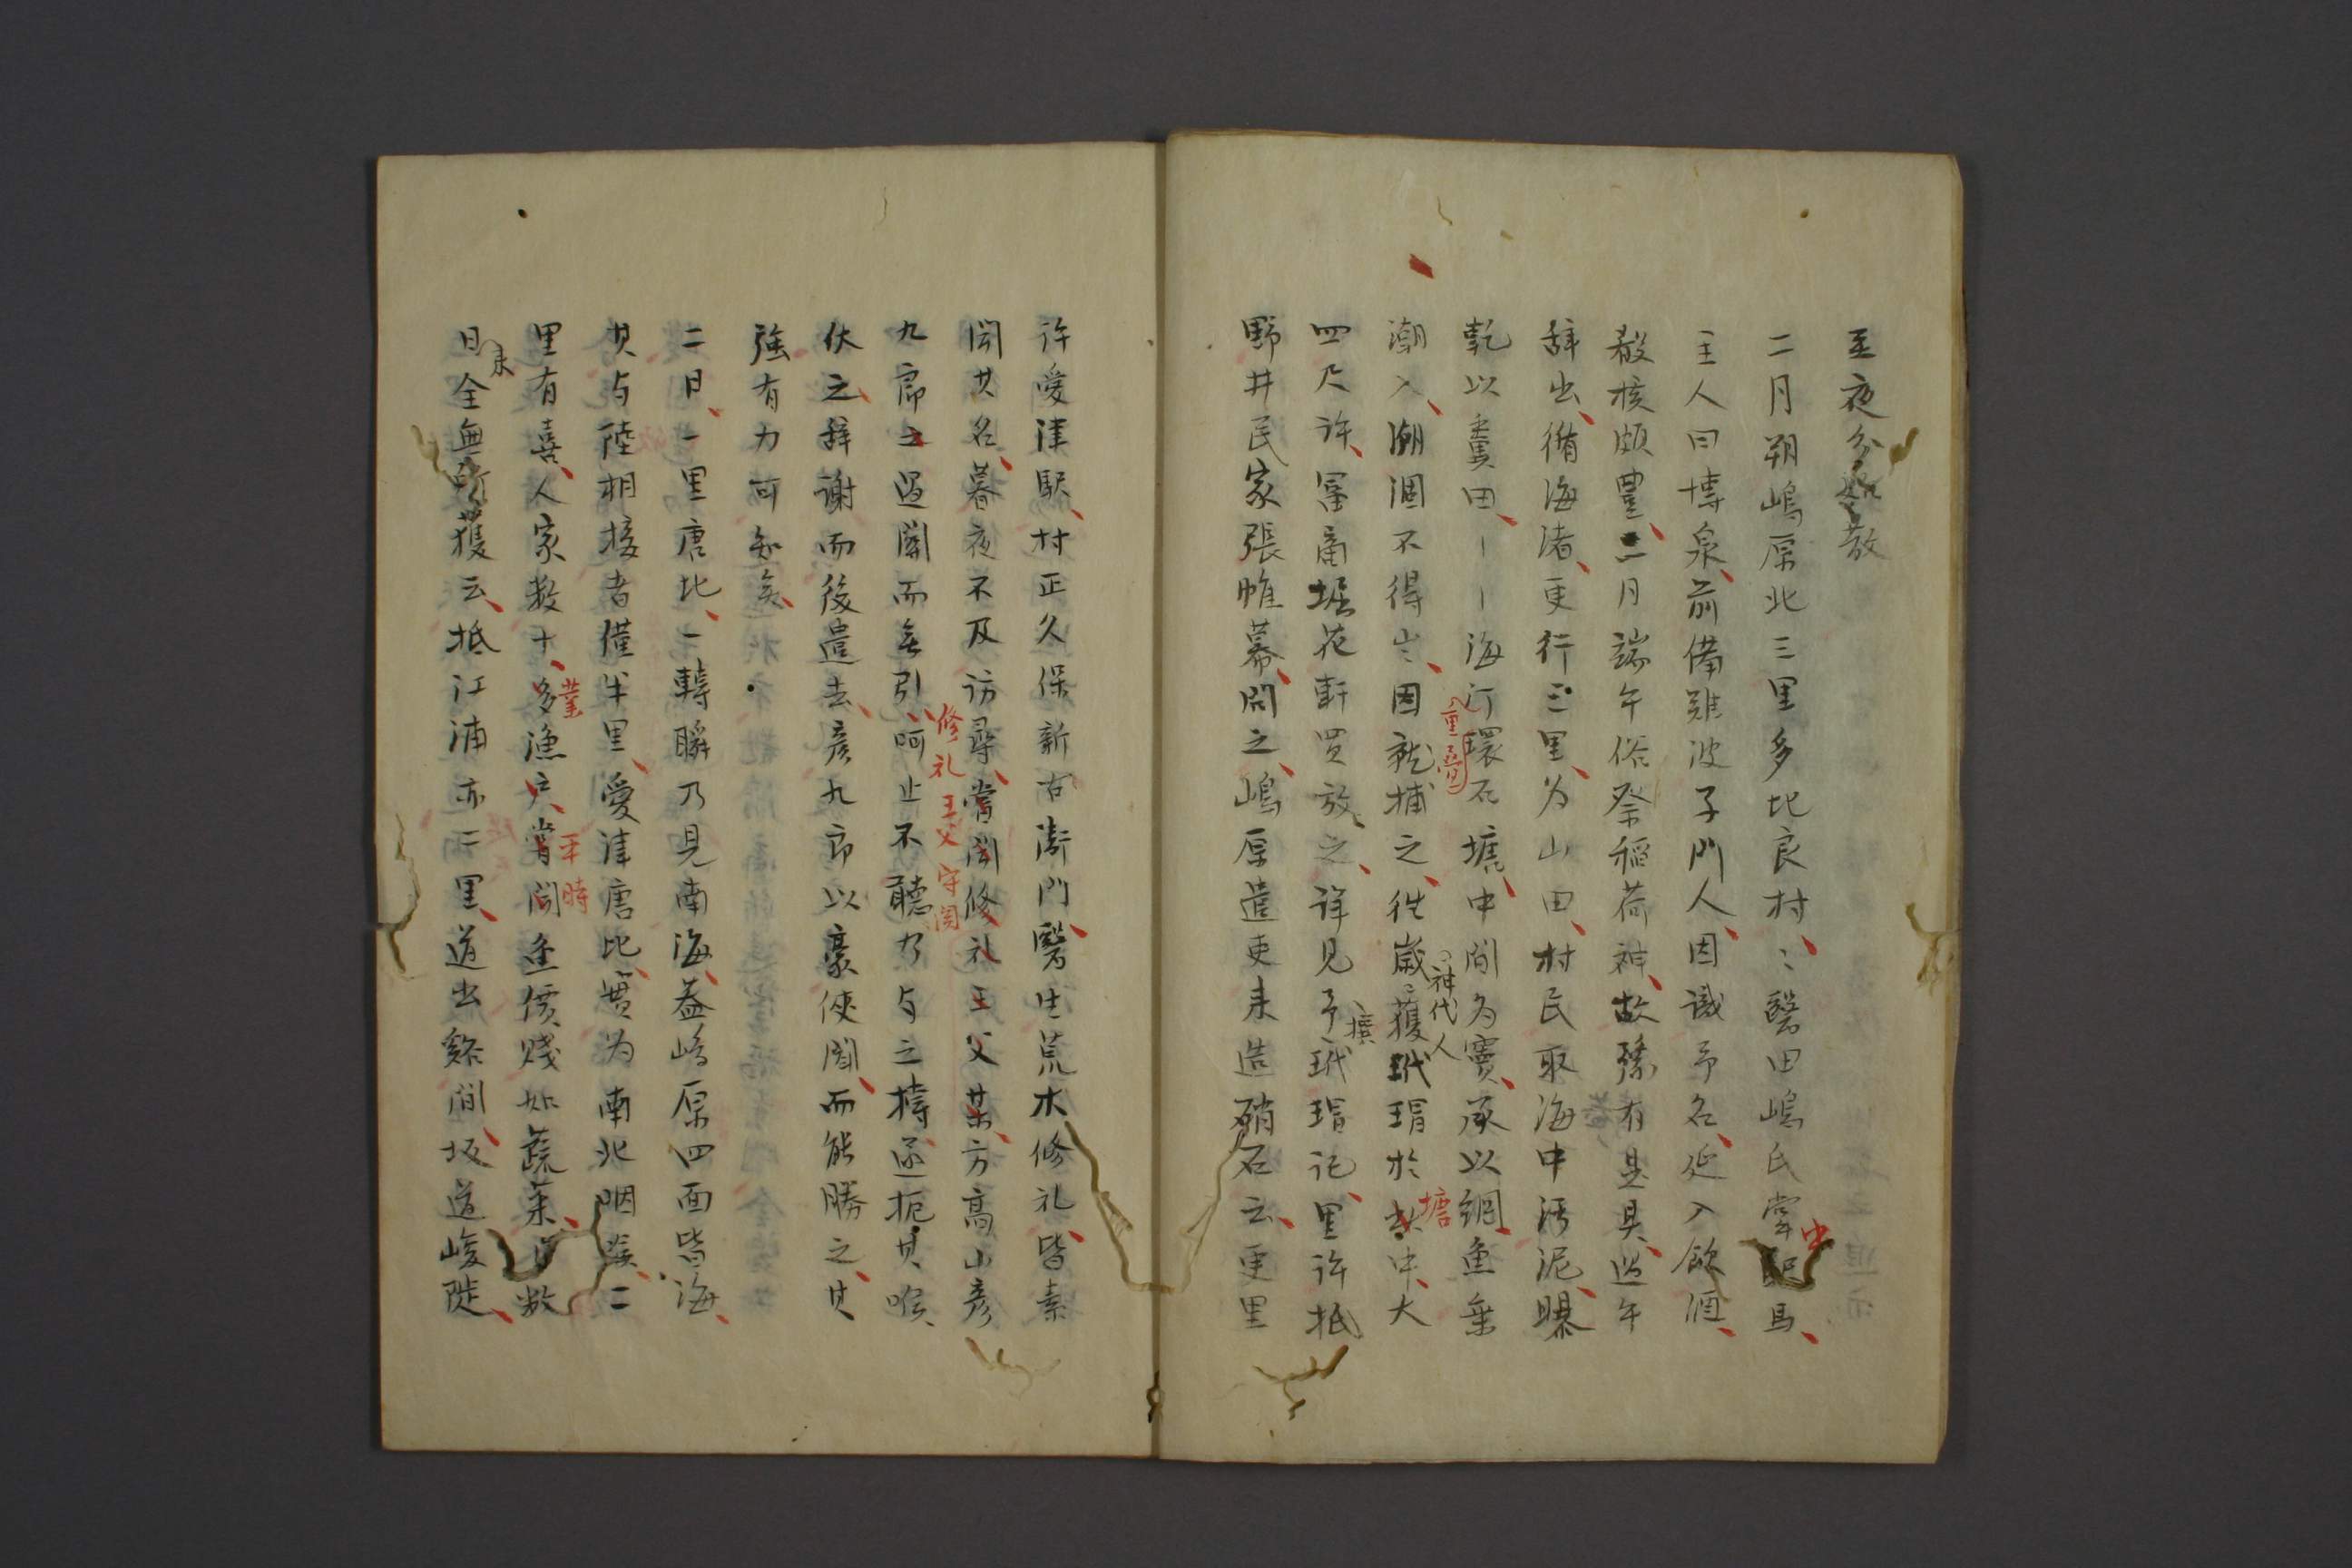 至夜分散
二月朔嶋原北三里多比良村、〻醫田嶋氏堂中馬
主人曰博泉、前備難波子門人、因識予名、延入飲酒、
殽核頗豊、二月端午俗祭稲荷神、故殽有是具、過午
辞出、循海渚、更行三里、為山田、村民取海中汚泥、曝
乾以糞田、海汀環石塘、中間為竇、承以網、魚乗
潮入、潮涸不得出、因就捕之、往歳獲玳瑁於塘中、大
四尺許、冨商堀花軒買放之、詳見予玳瑁記、里許抵
野井民家張帷幕、問之、嶋原遣吏来造硝石云、更里
許愛津駅、村正久保新右衛門、醫生荒木修礼、皆素
聞其名、暮夜不及訪尋、嘗聞修礼王父某、方高山彦
九郎之過関而無引、呵止不聴、乃与之摶、遂扼其喉、
伏之、辞謝而後遣去、彦九郎以豪侠聞、而能勝之、其
強有力可知矣、
二日、一里唐比、一轉瞬乃見南海、蓋嶋原四面皆海、
其与陸相接者僅半里、愛津唐比、實為南北咽喉、二
里有喜、人家数十、多業漁、平時魚價賎如蔬菜、数
日来全無所獲云、抵江浦亦二里、道出谿間、坂道峻陡、
修礼王父守関
神代人
撰